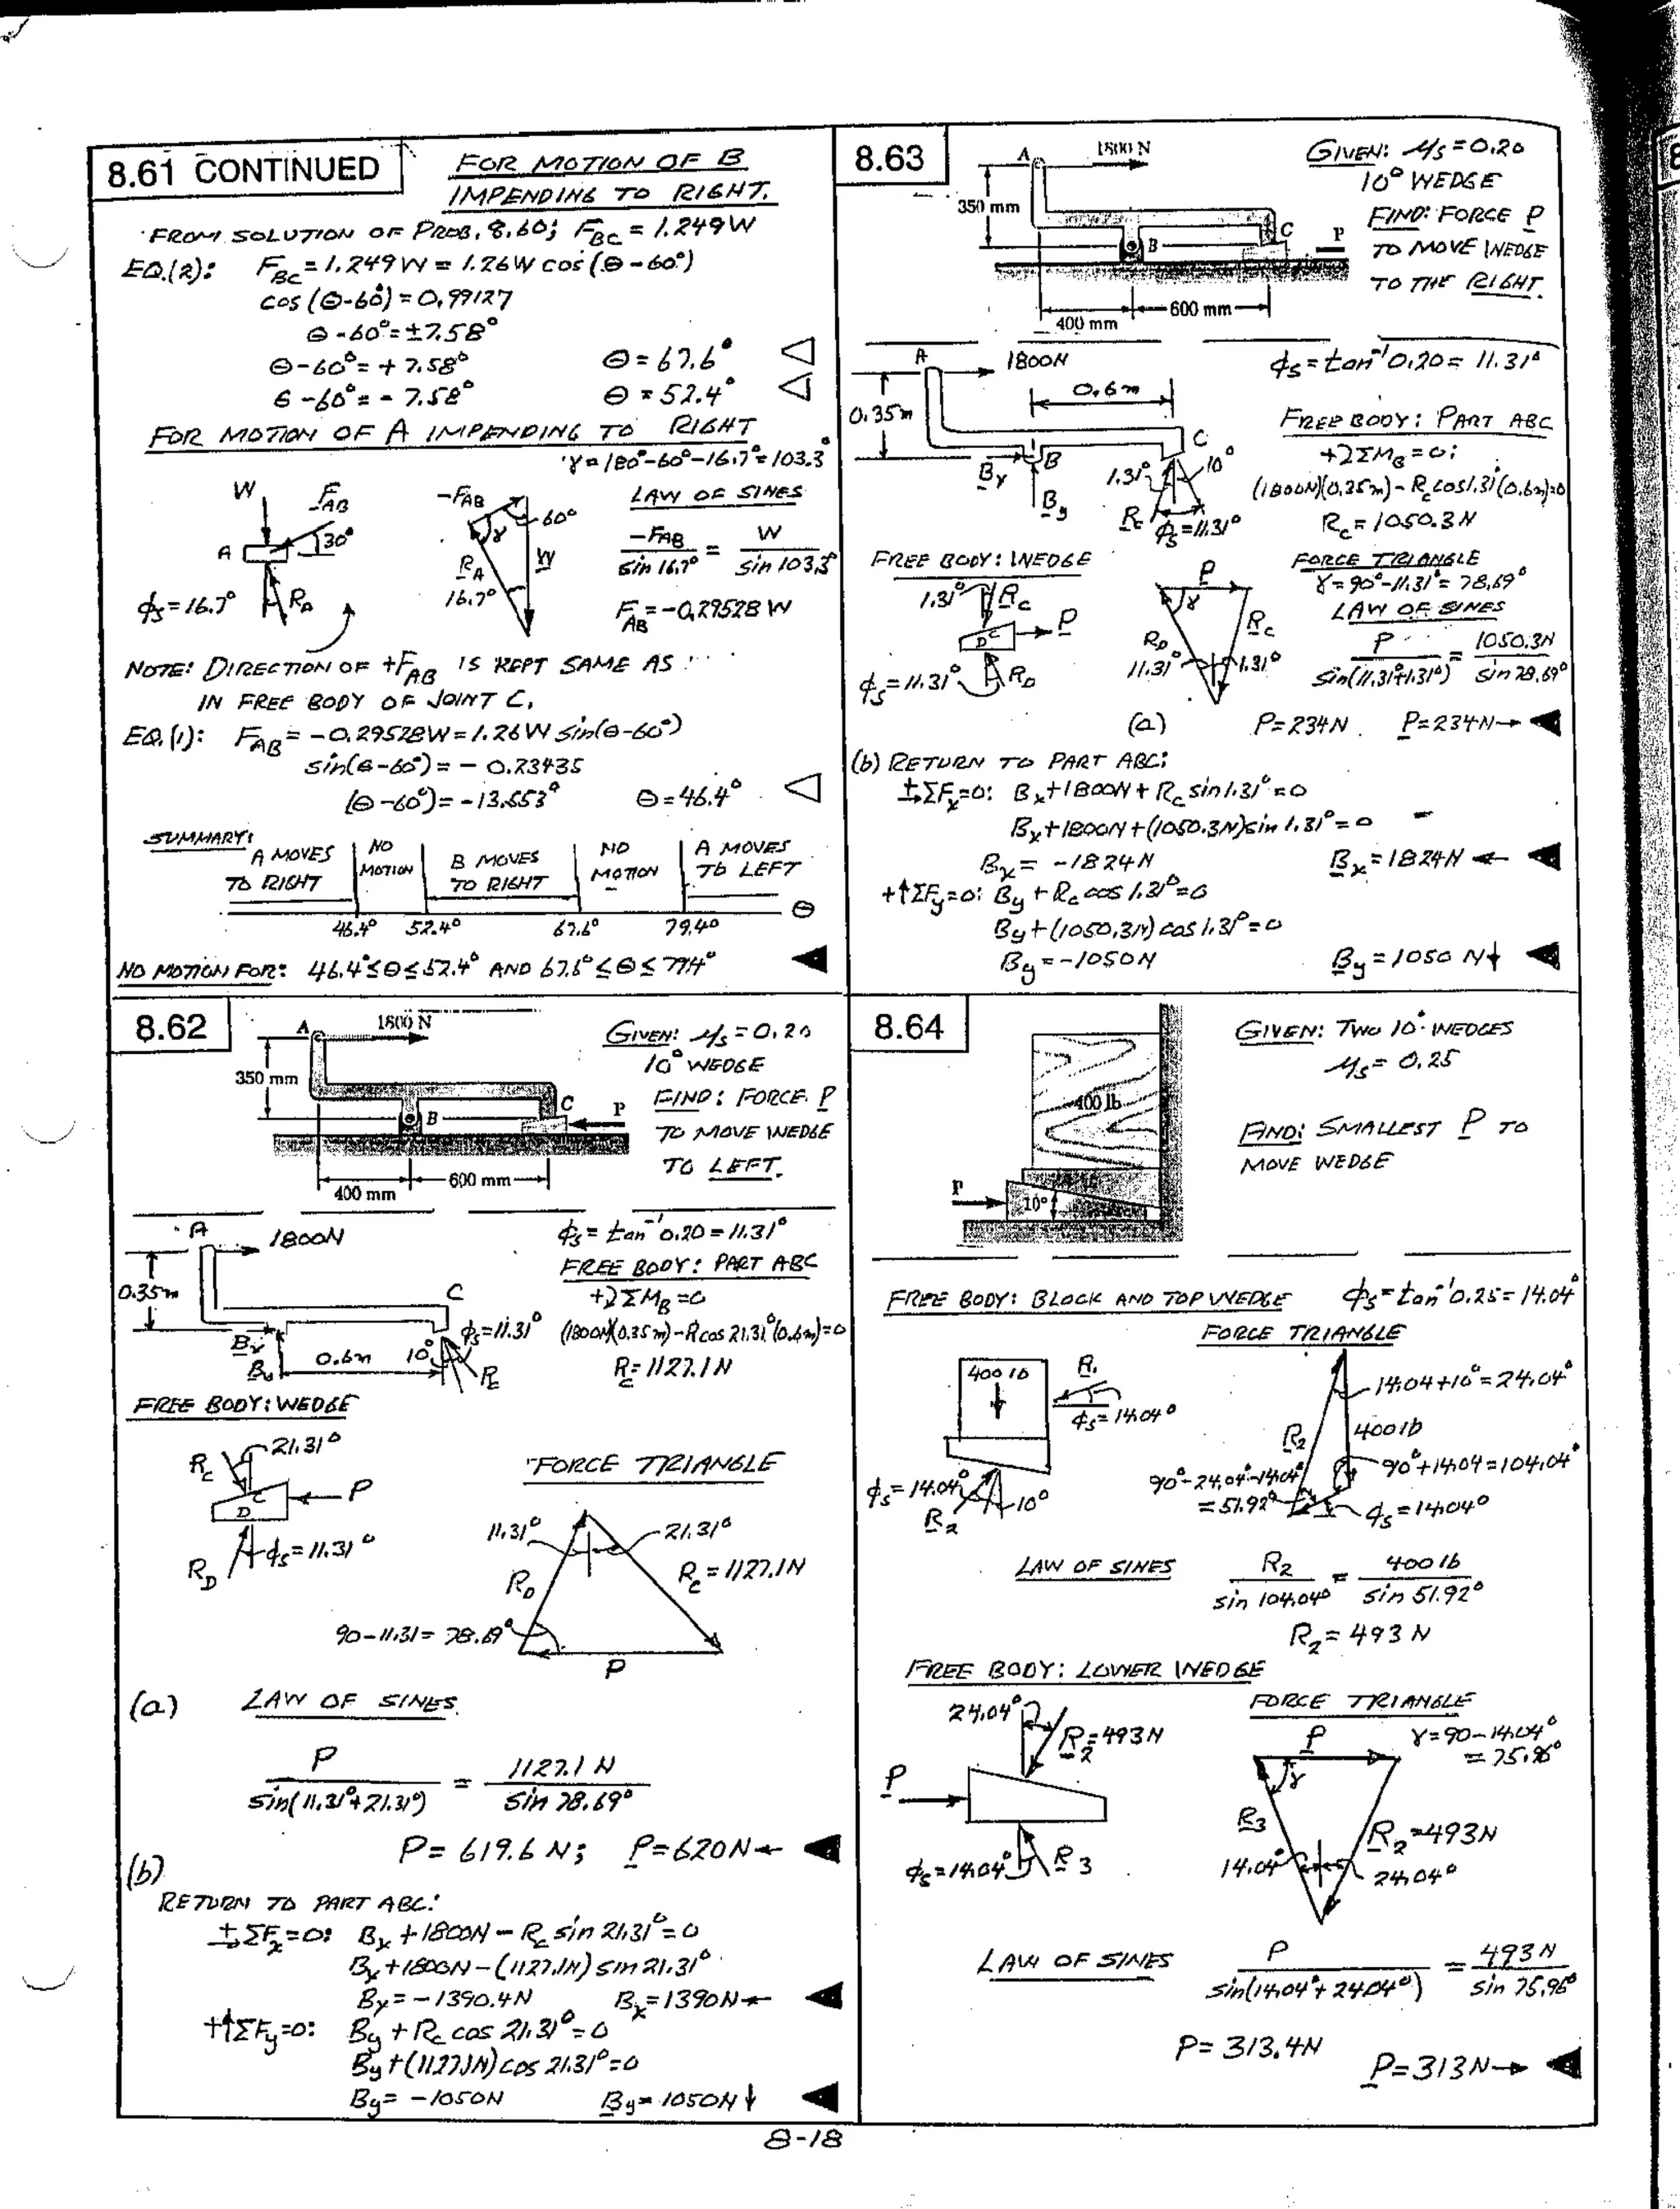 8.61 CONTINUED
FOR MOTION OF B
IMPENDING TO RIGHT.
FROM SOLUTION OF PROB. 8.60; F_BC = 1.249W
EQ.(2): F_BC = 1.249W = 1.26W cos(θ-60°)
cos(θ-60°) = 0.99127
θ-60° = ±7.58°
θ-60° = +7.58° θ = 67.6°
θ-60° = -7.58° θ = 52.4°
FOR MOTION OF A IMPENDING TO RIGHT
γ = 180°-60°-16.7° = 103.3°
W F_AB -F_AB 60° LAW OF SINES
A 30° γ W
R_A 16.7°
-F_AB / sin 16.7° = W / sin 103.3°
φs = 16.7° R_A
F_AB = -0.29528 W
NOTE: DIRECTION OF +F_AB IS KEPT SAME AS
IN FREE BODY OF JOINT C.
EQ.(1): F_AB = -0.29528W = 1.26W sin(θ-60°)
sin(θ-60°) = -0.23435
(θ-60°) = -13.553° θ = 46.4°
SUMMARY:
A MOVES TO RIGHT | NO MOTION | B MOVES TO RIGHT | NO MOTION | A MOVES TO LEFT
46.4° 52.4° 67.6° 79.4° θ
NO MOTION FOR: 46.4° ≤ θ ≤ 52.4° AND 67.6° ≤ θ ≤ 79.4°
8.62
A 1800 N
350 mm
B C P
400 mm 600 mm
GIVEN: μs = 0.20
10° WEDGE
FIND: FORCE P
TO MOVE WEDGE
TO LEFT.
A 1800N
0.35m
C
Bx
0.6m 10° φs = 11.31°
R_C
φs = tan⁻¹ 0.20 = 11.31°
FREE BODY: PART ABC
+↻ΣM_B = 0
(1800N)(0.35m) - R cos 21.31°(0.6m) = 0
R_C = 1127.1 N
FREE BODY: WEDGE
R_C 21.31°
C P
D
R_D φs = 11.31°
FORCE TRIANGLE
11.31° 21.31°
R_D R_C = 1127.1N
90-11.31 = 78.69°
P
(a) LAW OF SINES
P / sin(11.31°+21.31°) = 1127.1 N / sin 78.69°
P = 619.6 N; P = 620N ←
(b)
RETURN TO PART ABC:
+→ΣFx=0: Bx + 1800N - R_C sin 21.31° = 0
Bx + 1800N - (1127.1N) sin 21.31°
Bx = -1390.4N Bx = 1390N ←
+↑ΣFy=0: By + R_C cos 21.31° = 0
By + (1127.1N) cos 21.31° = 0
By = -1050N By = 1050N ↓
8.63
A 1800 N
350 mm
B C P
400 mm 600 mm
GIVEN: μs = 0.20
10° WEDGE
FIND: FORCE P
TO MOVE WEDGE
TO THE RIGHT.
A 1800N
0.6m
0.35m
Bx B C
1.31° 10°
By R_C φs = 11.31°
φs = tan⁻¹ 0.20 = 11.31°
FREE BODY: PART ABC
+↻ΣM_B = 0:
(1800N)(0.35m) - R_C cos 1.31°(0.6m) = 0
R_C = 1050.3 N
FREE BODY: WEDGE
1.31° R_C
D C P
φs = 11.31° R_D
P
γ R_C
R_D
11.31° 1.31°
FORCE TRIANGLE
γ = 90°-11.31° = 78.69°
LAW OF SINES
P / sin(11.31°+1.31°) = 1050.3N / sin 78.69°
(a) P = 234N P = 234N →
(b) RETURN TO PART ABC:
+→ΣFx=0: Bx + 1800N + R_C sin 1.31° = 0
Bx + 1800N + (1050.3N) sin 1.31° = 0
Bx = -1824N Bx = 1824N ←
+↑ΣFy=0: By + R_C cos 1.31° = 0
By + (1050.3N) cos 1.31° = 0
By = -1050N By = 1050 N ↓
8.64
400 lb
P 10°
GIVEN: TWO 10° WEDGES
μs = 0.25
FIND: SMALLEST P TO
MOVE WEDGE
FREE BODY: BLOCK AND TOP WEDGE φs = tan⁻¹ 0.25 = 14.04°
FORCE TRIANGLE
400 lb R1
φs = 14.04°
φs = 14.04° 10°
R2
14.04+10° = 24.04°
R2 400 lb
90°+14.04 = 104.04°
90°-24.04°-14.04°
= 51.92°
φs = 14.04°
LAW OF SINES R2 / sin 104.04° = 400 lb / sin 51.92°
R2 = 493 N
FREE BODY: LOWER WEDGE
24.04°
R2 = 493N
P
φs = 14.04° R3
FORCE TRIANGLE
P γ = 90-14.04°
= 75.96°
γ
R3 R2 = 493N
14.04° 24.04°
LAW OF SINES P / sin(14.04°+24.04°) = 493 N / sin 75.96°
P = 313.4N
P = 313N →
8-18